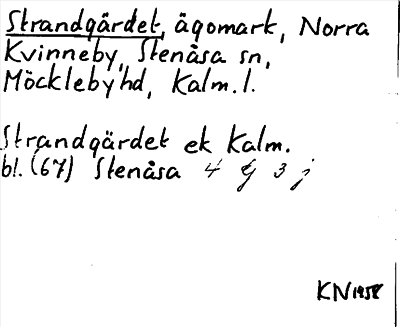 Strandgärdet, ägomark, Norra
Kvinneby, Stenåsa sn,
Möckleby hd, Kalm. l.
Strandgärdet ek Kalm.
bl. (67) Stenåsa 4 G 3 j
KN 1958